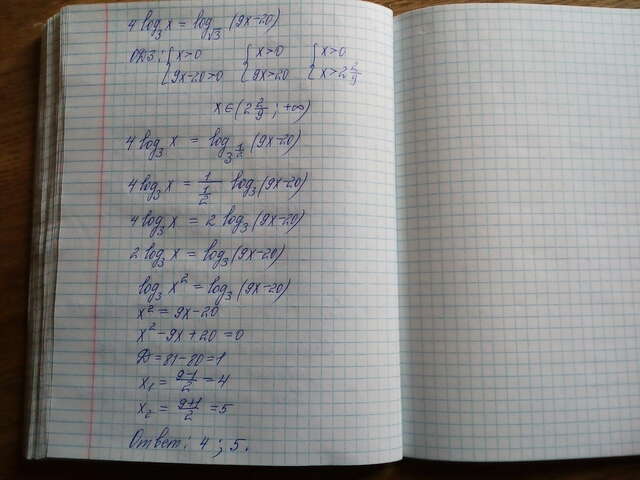 4 log₃ x = log_√3 (9x-20)
ОДЗ: { x>0 { x>0 { x>0
{ 9x-20>0 { 9x>20 { x>2 2/9
x ∈ (2 2/9 ; +∞)
4 log₃ x = log_3^(1/2) (9x-20)
4 log₃ x = 1/(1/2) log₃ (9x-20)
4 log₃ x = 2 log₃ (9x-20)
2 log₃ x = log₃ (9x-20)
log₃ x² = log₃ (9x-20)
x² = 9x-20
x² - 9x + 20 = 0
D = 81-80 = 1
x₁ = (9-1)/2 = 4
x₂ = (9+1)/2 = 5
Ответ: 4 ; 5.